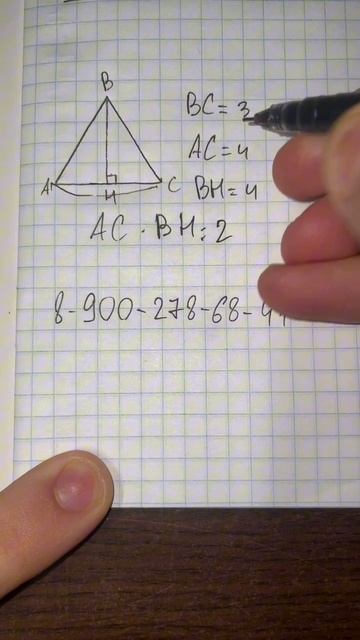 B
BC = 3
AC = 4
A H C
BH = 4
AC · BH : 2
8-900-278-68-